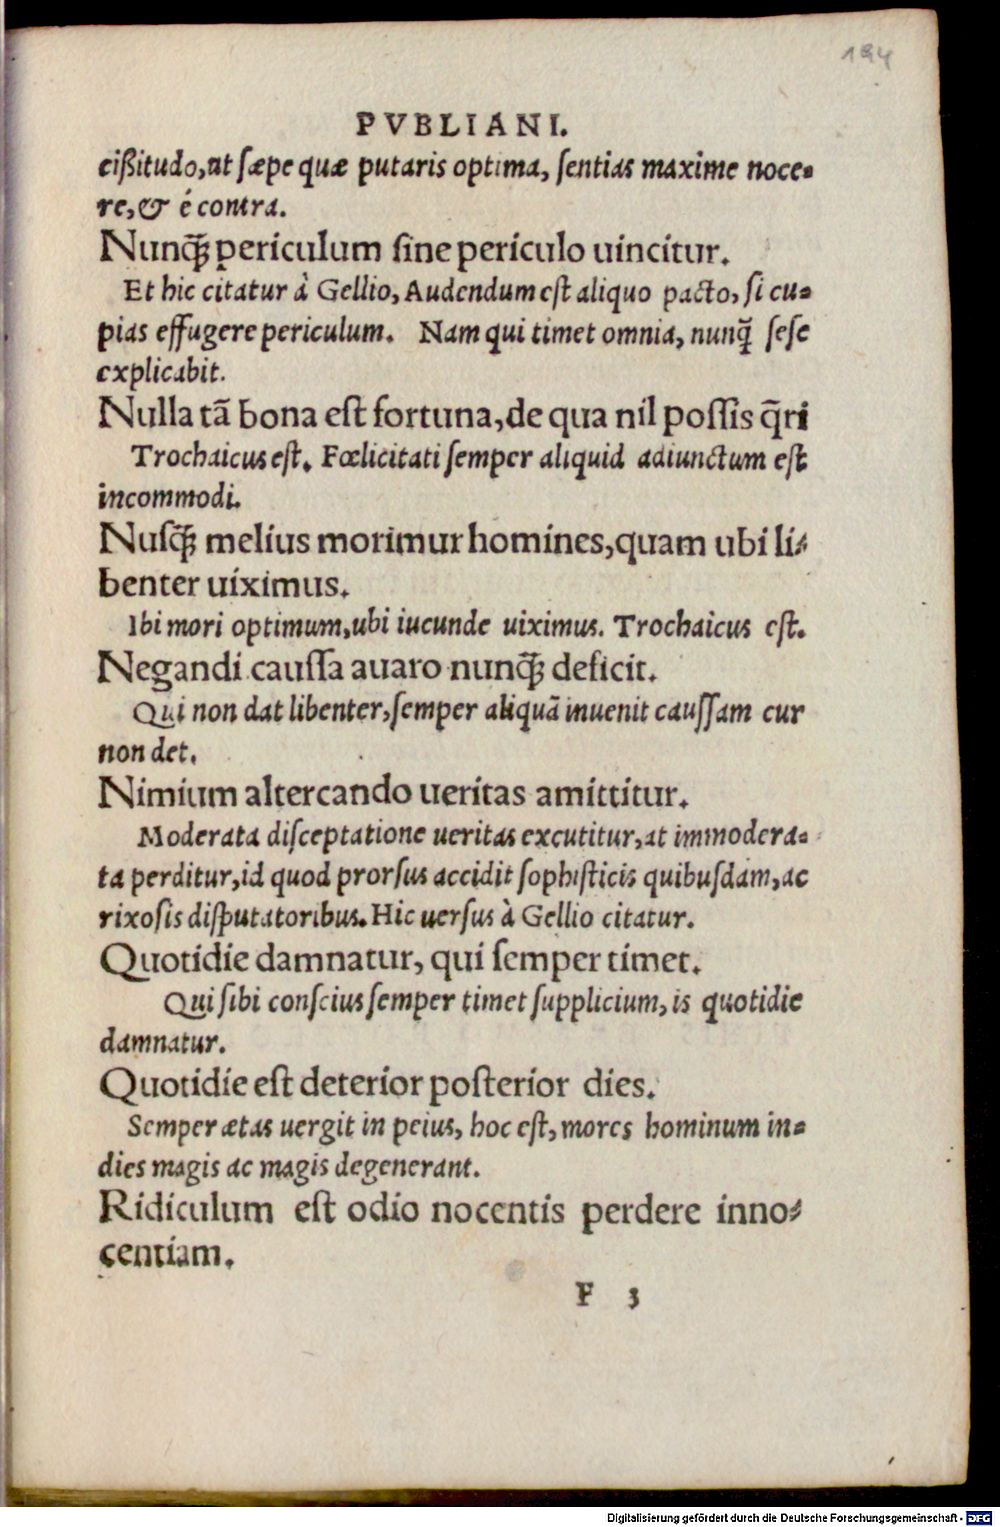 194
PVBLIANI.
cißitudo, ut sæpe quæ putaris optima, sentias maxime noce-
re, & é contra.
Nunq̃ periculum sine periculo uincitur.
Et hic citatur à Gellio, Audendum est aliquo pacto, si cu-
pias effugere periculum. Nam qui timet omnia, nunq̃ sese
explicabit.
Nulla tã bona est fortuna, de qua nil possis q̃ri
Trochaicus est. Fœlicitati semper aliquid adiunctum est
incommodi.
Nusq̃ melius morimur homines, quam ubi li-
benter uiximus.
Ibi mori optimum, ubi iucunde uiximus. Trochaicus est.
Negandi caussa auaro nunq̃ deficit.
Qui non dat libenter, semper aliquã inuenit caussam cur
non det.
Nimium altercando ueritas amittitur.
Moderata disceptatione ueritas excutitur, at immodera-
ta perditur, id quod prorsus accidit sophisticis quibusdam, ac
rixosis disputatoribus. Hic uersus à Gellio citatur.
Quotidie damnatur, qui semper timet.
Qui sibi conscius semper timet supplicium, is quotidie
damnatur.
Quotidie est deterior posterior dies.
Semper ætas uergit in peius, hoc est, mores hominum in-
dies magis ac magis degenerant.
Ridiculum est odio nocentis perdere inno-
centiam.
F 3
Digitalisierung gefördert durch die Deutsche Forschungsgemeinschaft - DFG